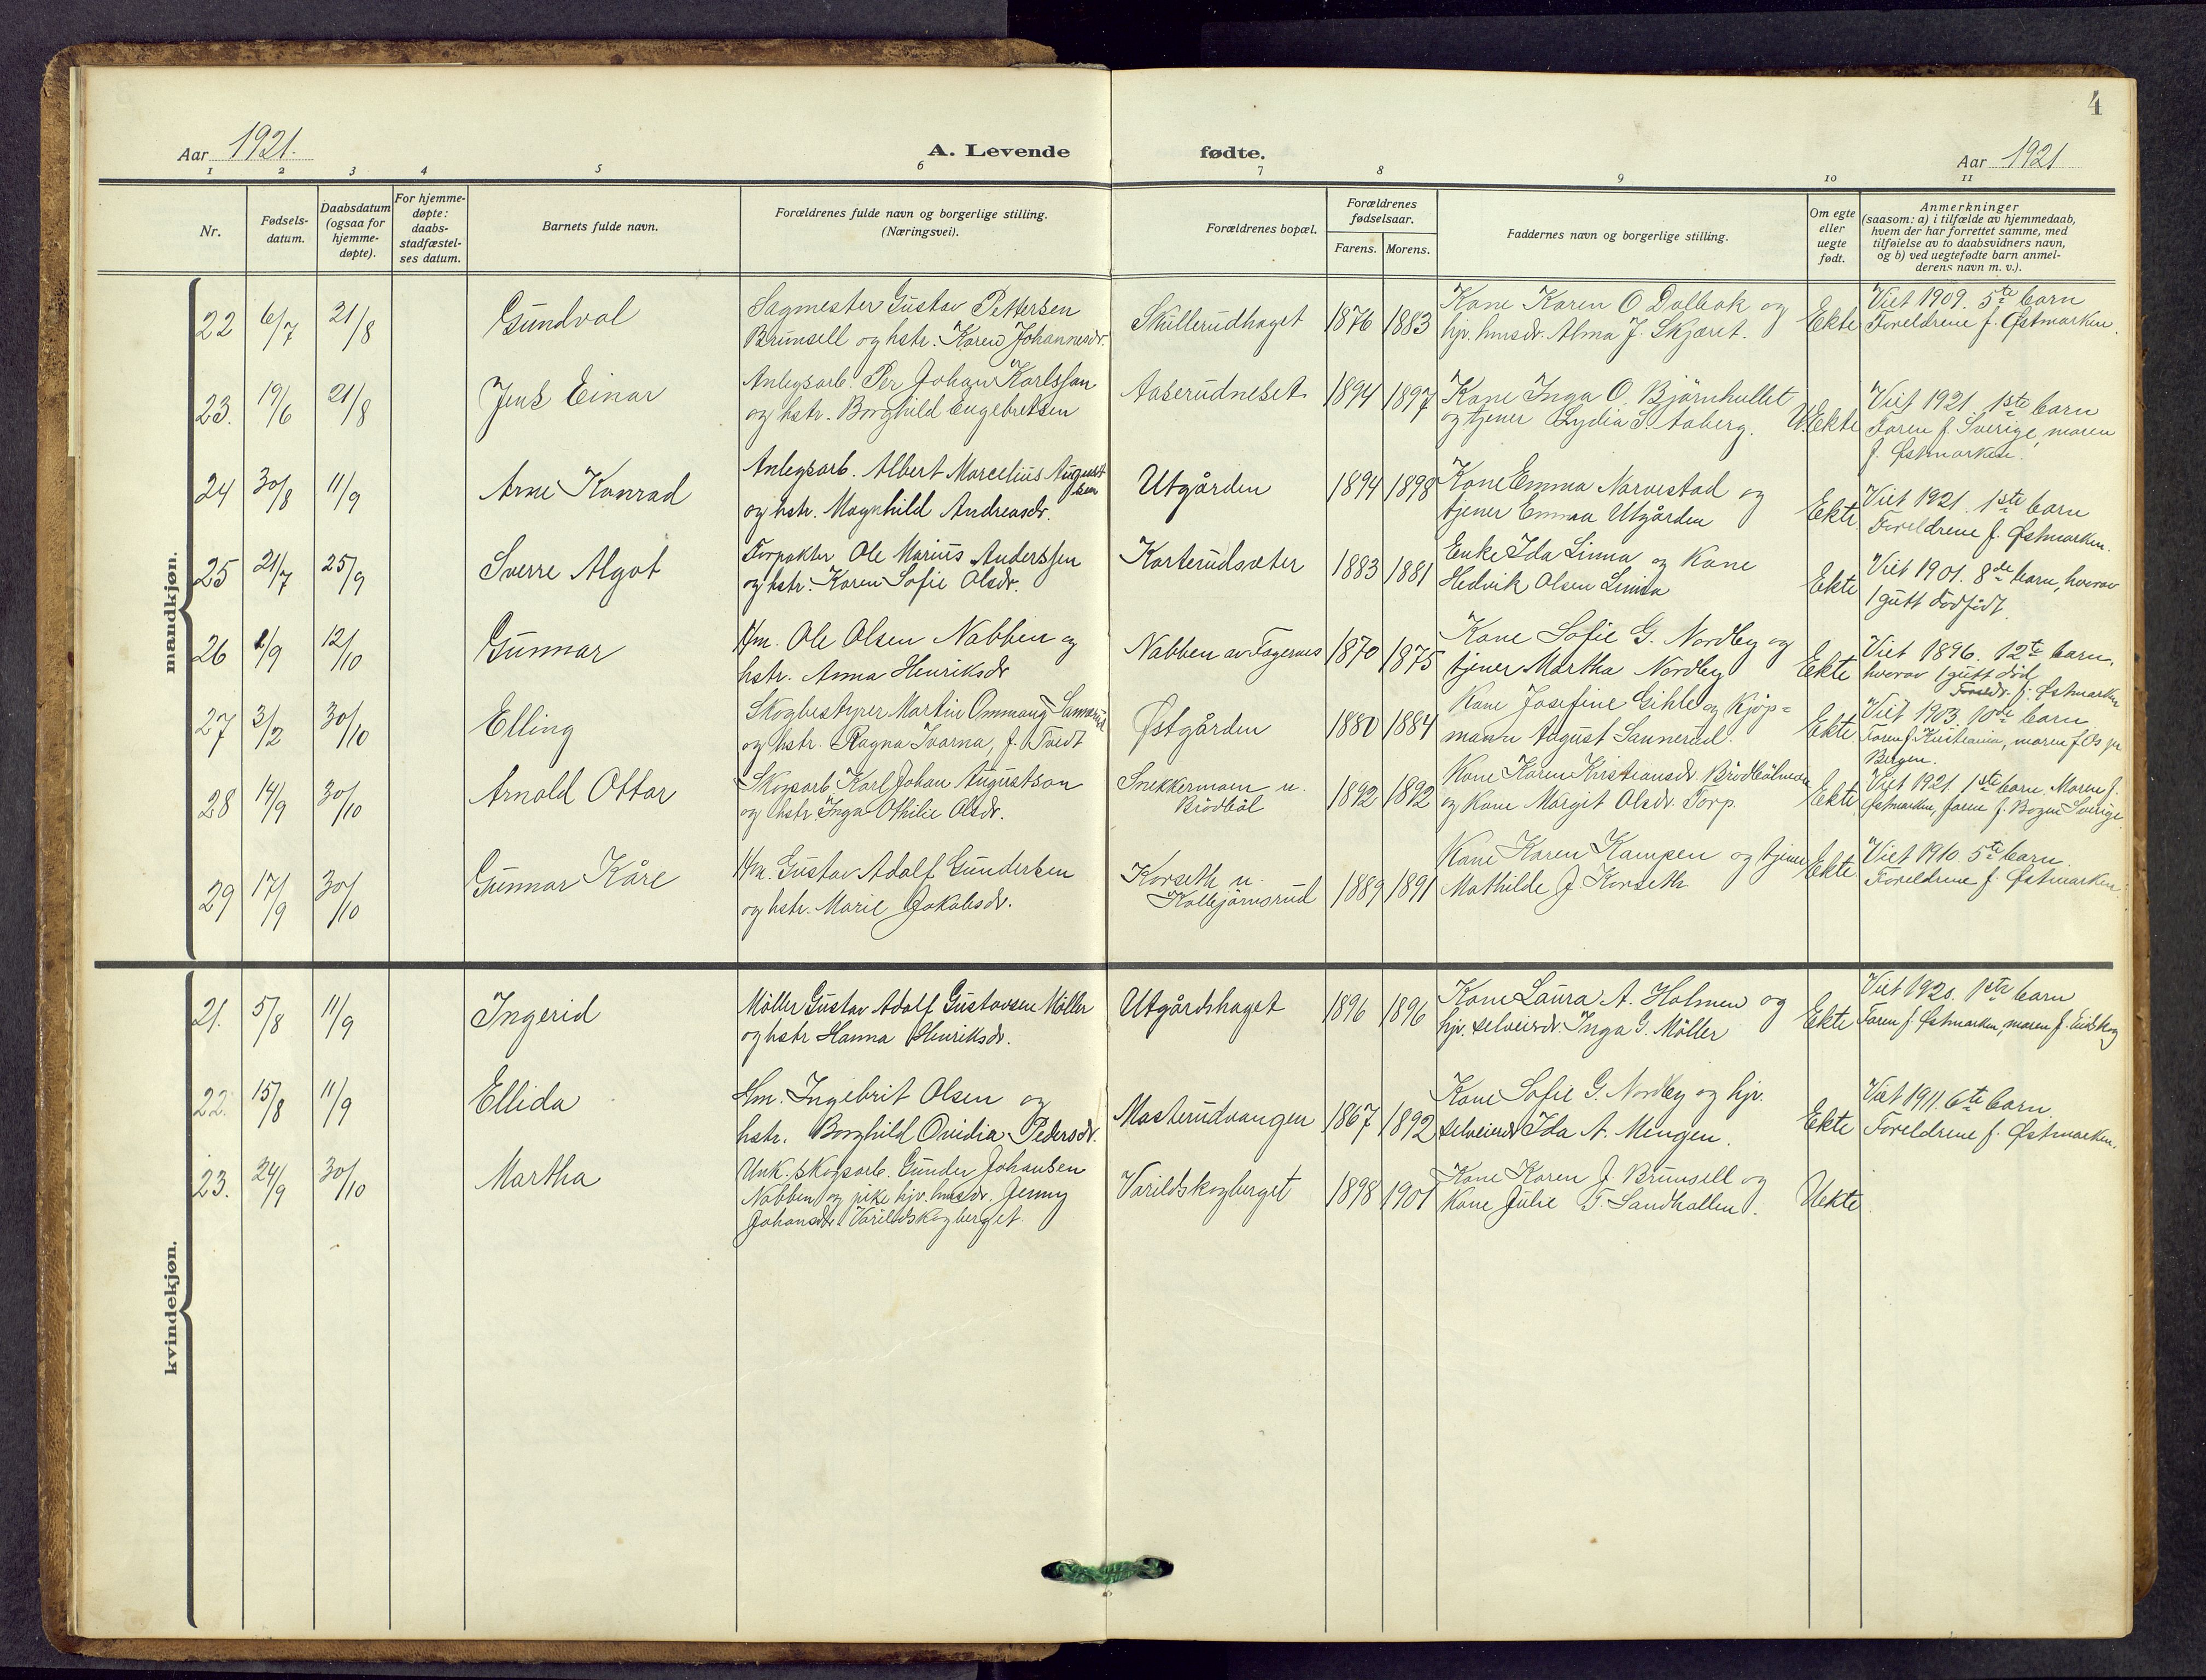 4
Aar 1921.
A. Levende fødte.
Aar 1921
1 2 3 4 5 6 7 8 9 10 11
Nr.
Fødsels-
datum.
Daabsdatum
(ogsaa for
hjemme-
døpte).
For hjemme-
døpte:
daabs-
stadfæstel-
ses datum.
Barnets fulde navn.
Forældrenes fulde navn og borgerlige stilling.
(Næringsvei).
Forældrenes bopæl.
Forældrenes
fødselsaar.
Farens. Morens.
Faddernes navn og borgerlige stilling.
Om egte
eller
uegte
født.
Anmerkninger
(saasom: a) i tilfælde av hjemmedaab,
hvem der har forrettet samme, med
tilføielse av to daabsvidners navn,
og b) ved uegtefødte barn anmel-
derens navn m. v.).
mandkjøn.
22 6/7 21/8 Gundval
Sagmester Gustav Pettersen
Brunsell og hstr. Karen Johannesdr.
Skullerudhaget 1876 1883
Kone Karen O Dalbak og
hjv. hmsdr. Alma J. Skjæret.
Ekte
Viet 1909. 5te barn
Foreldrene f. Østmarken.
23. 19/6 21/8 Jens Einar
Anlegsarb. Per Johan Karlssan
og hstr. Borghild Engebretsen
Aaserudneset 1894 1897
Kone Inga O. Bjørnhullet
og tjener Lydia S. Aaberg.
U.Ekte
Viet 1921. 1ste barn
Faren f. Sverige, moren
f. Østmarken.
24 30/8 11/9 Arne Konrad
Anlegsarb. Albert Marcelius August
sen
og hstr. Magnhild Andreasdr.
Utgården 1894 1898
Kone Emma Narvestad og
tjener Emma Utgården
Ekte
Viet 1921. 1ste barn
Foreldrene f. Østmarken.
25 21/7 25/9 Sverre Algot
Forpakter Ole Marius Anderssen
og hstr. Karen Sofie Olsdr.
Karterudsæter 1883 1881
Enke Ida Linna og Kone
Hedvik Olsen Linna
Ekte
Viet 1901. 8de barn, hvorav
1 gutt dødfødt.
26 2/9 12/10 Gunnar
Hm. Ole Olsen Nabben og
hstr. Anna Henriksdr
Nabben av Fagernes 1870 1875
Kone Sofie G. Nordby og
tjener Martha Nordby
Ekte
Viet 1896. 12te barn,
hvorav 1 gutt død
Foreldr. f. Østmarken
27 3/2 30/10 Elling
Skogbestyrer Martin Ommang Sannerud
og hstr. Ragna Ivarna, f. Tvedt
Østgården 1880 1884
Kone Josefine Gihle og Kjøp=
mann August Sannerud.
Ekte
Viet 1903. 10de barn
Faren f. Kristiania, moren f. Os pr
Bergen.
28 14/9 30/10 Arnold Ottar
Skogsarb Karl Johan Augustson
og hstr. Inga Othilie Olsdr.
Snekkermoen u.
Brødbøl 1892 1892
Kone Karen Kristiansdr. Brødbølmoen
og Kone Margit Olsdr. Torp.
Ekte
Viet 1921. 1ste barn. Moren f.
Østmarken, faren f. Bogen Sverige.
29 17/9 30/10 Gunnar Kåre
Hm. Gustav Adolf Gundersen
og hstr. Marie Jakobsdr.
Korseth u.
Kolbjørnsrud 1889 1891
Kone Karen Kampen og tjener
Mathilde J. Korseth
Ekte
Viet 1910. 5te barn.
Foreldrene f. Østmarken
kvindekjøn.
21. 5/8 11/9 Ingerid
Møller Gustav Adolf Gustavsen Møller
og hstr Hanna Henriksdr.
Utgårdshaget 1896 1896
Kone Laura A. Holmen og
hjv. selveierdr. Inga G. Møller
Ekte
Viet 1920. 1ste barn
Faren f. Østmarken, moren f. Eidskog
22. 15/8 11/9 Ellida
Hm. Ingebrit Olsen og
hstr. Borghild Ovidia Pedersdr.
Masterudvangen 1867 1892
Kone Sofie G. Nordby og hjv.
selveierdr Ida A. Mengen.
Ekte
Viet 1911. 6te barn.
Foreldrene f. Østmarken.
23. 24/9 30/10 Martha
Unk. skogsarb. Gunder Johansen
Nabben og pike hjv. hmsdr. Jenny
Johansdr. Varildskogberget.
Varildskogberget 1898 1901
Kone Karen J. Brunsell og
Kone Julie T. Sandhallen.
Uekte